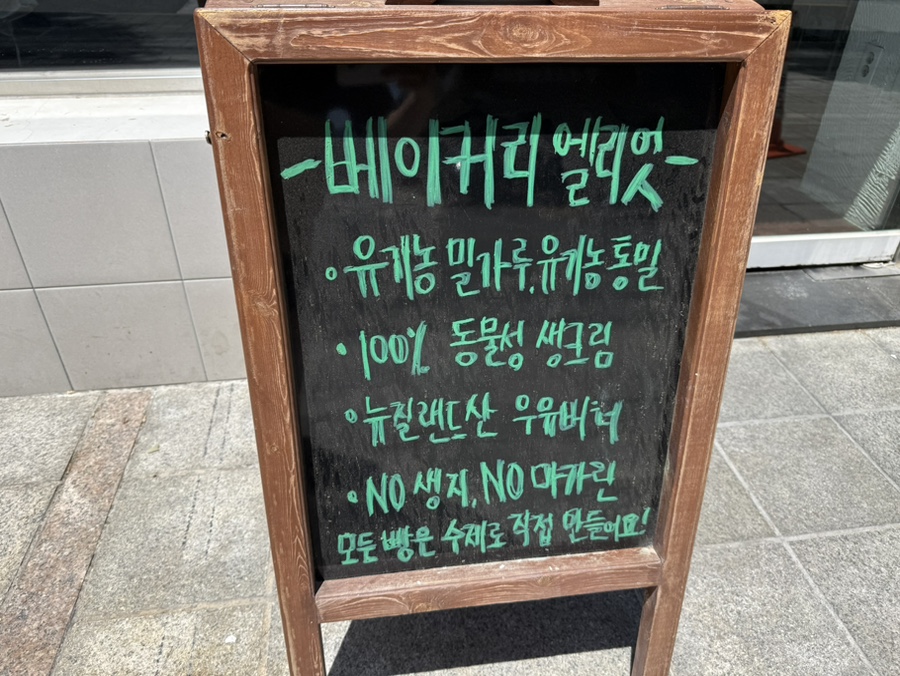 -베이커리 엘리엇-
• 유기농 밀가루, 유기농 통밀
• 100% 동물성 생크림
• 뉴질랜드산 우유버터
• NO 생지, NO 마가린
모든 빵은 수제로 직접 만들어요!